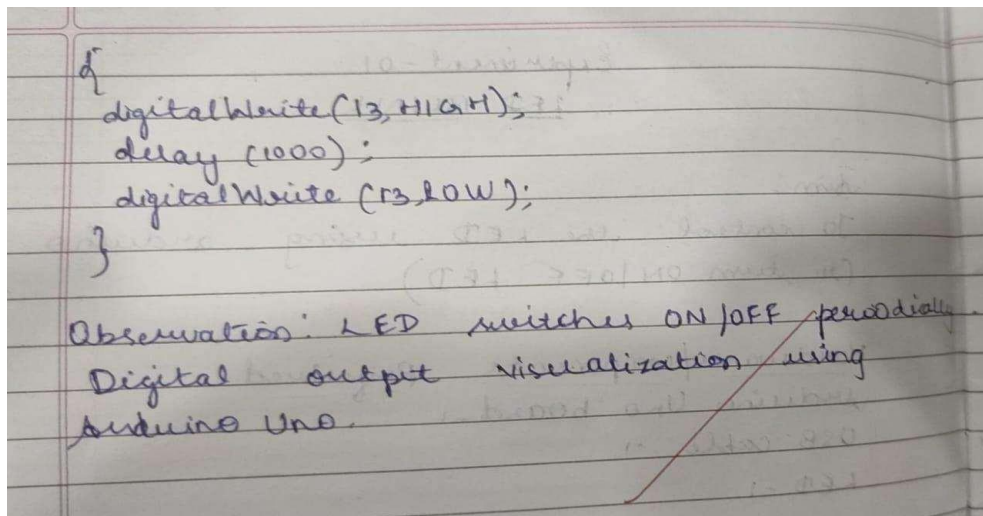 {
digitalWrite(13, HIGH);
delay (1000);
digitalWrite (13, LOW);
}
Observation: LED switches ON/OFF peroodially.
Digital outpit visualization using
Arduino Uno.